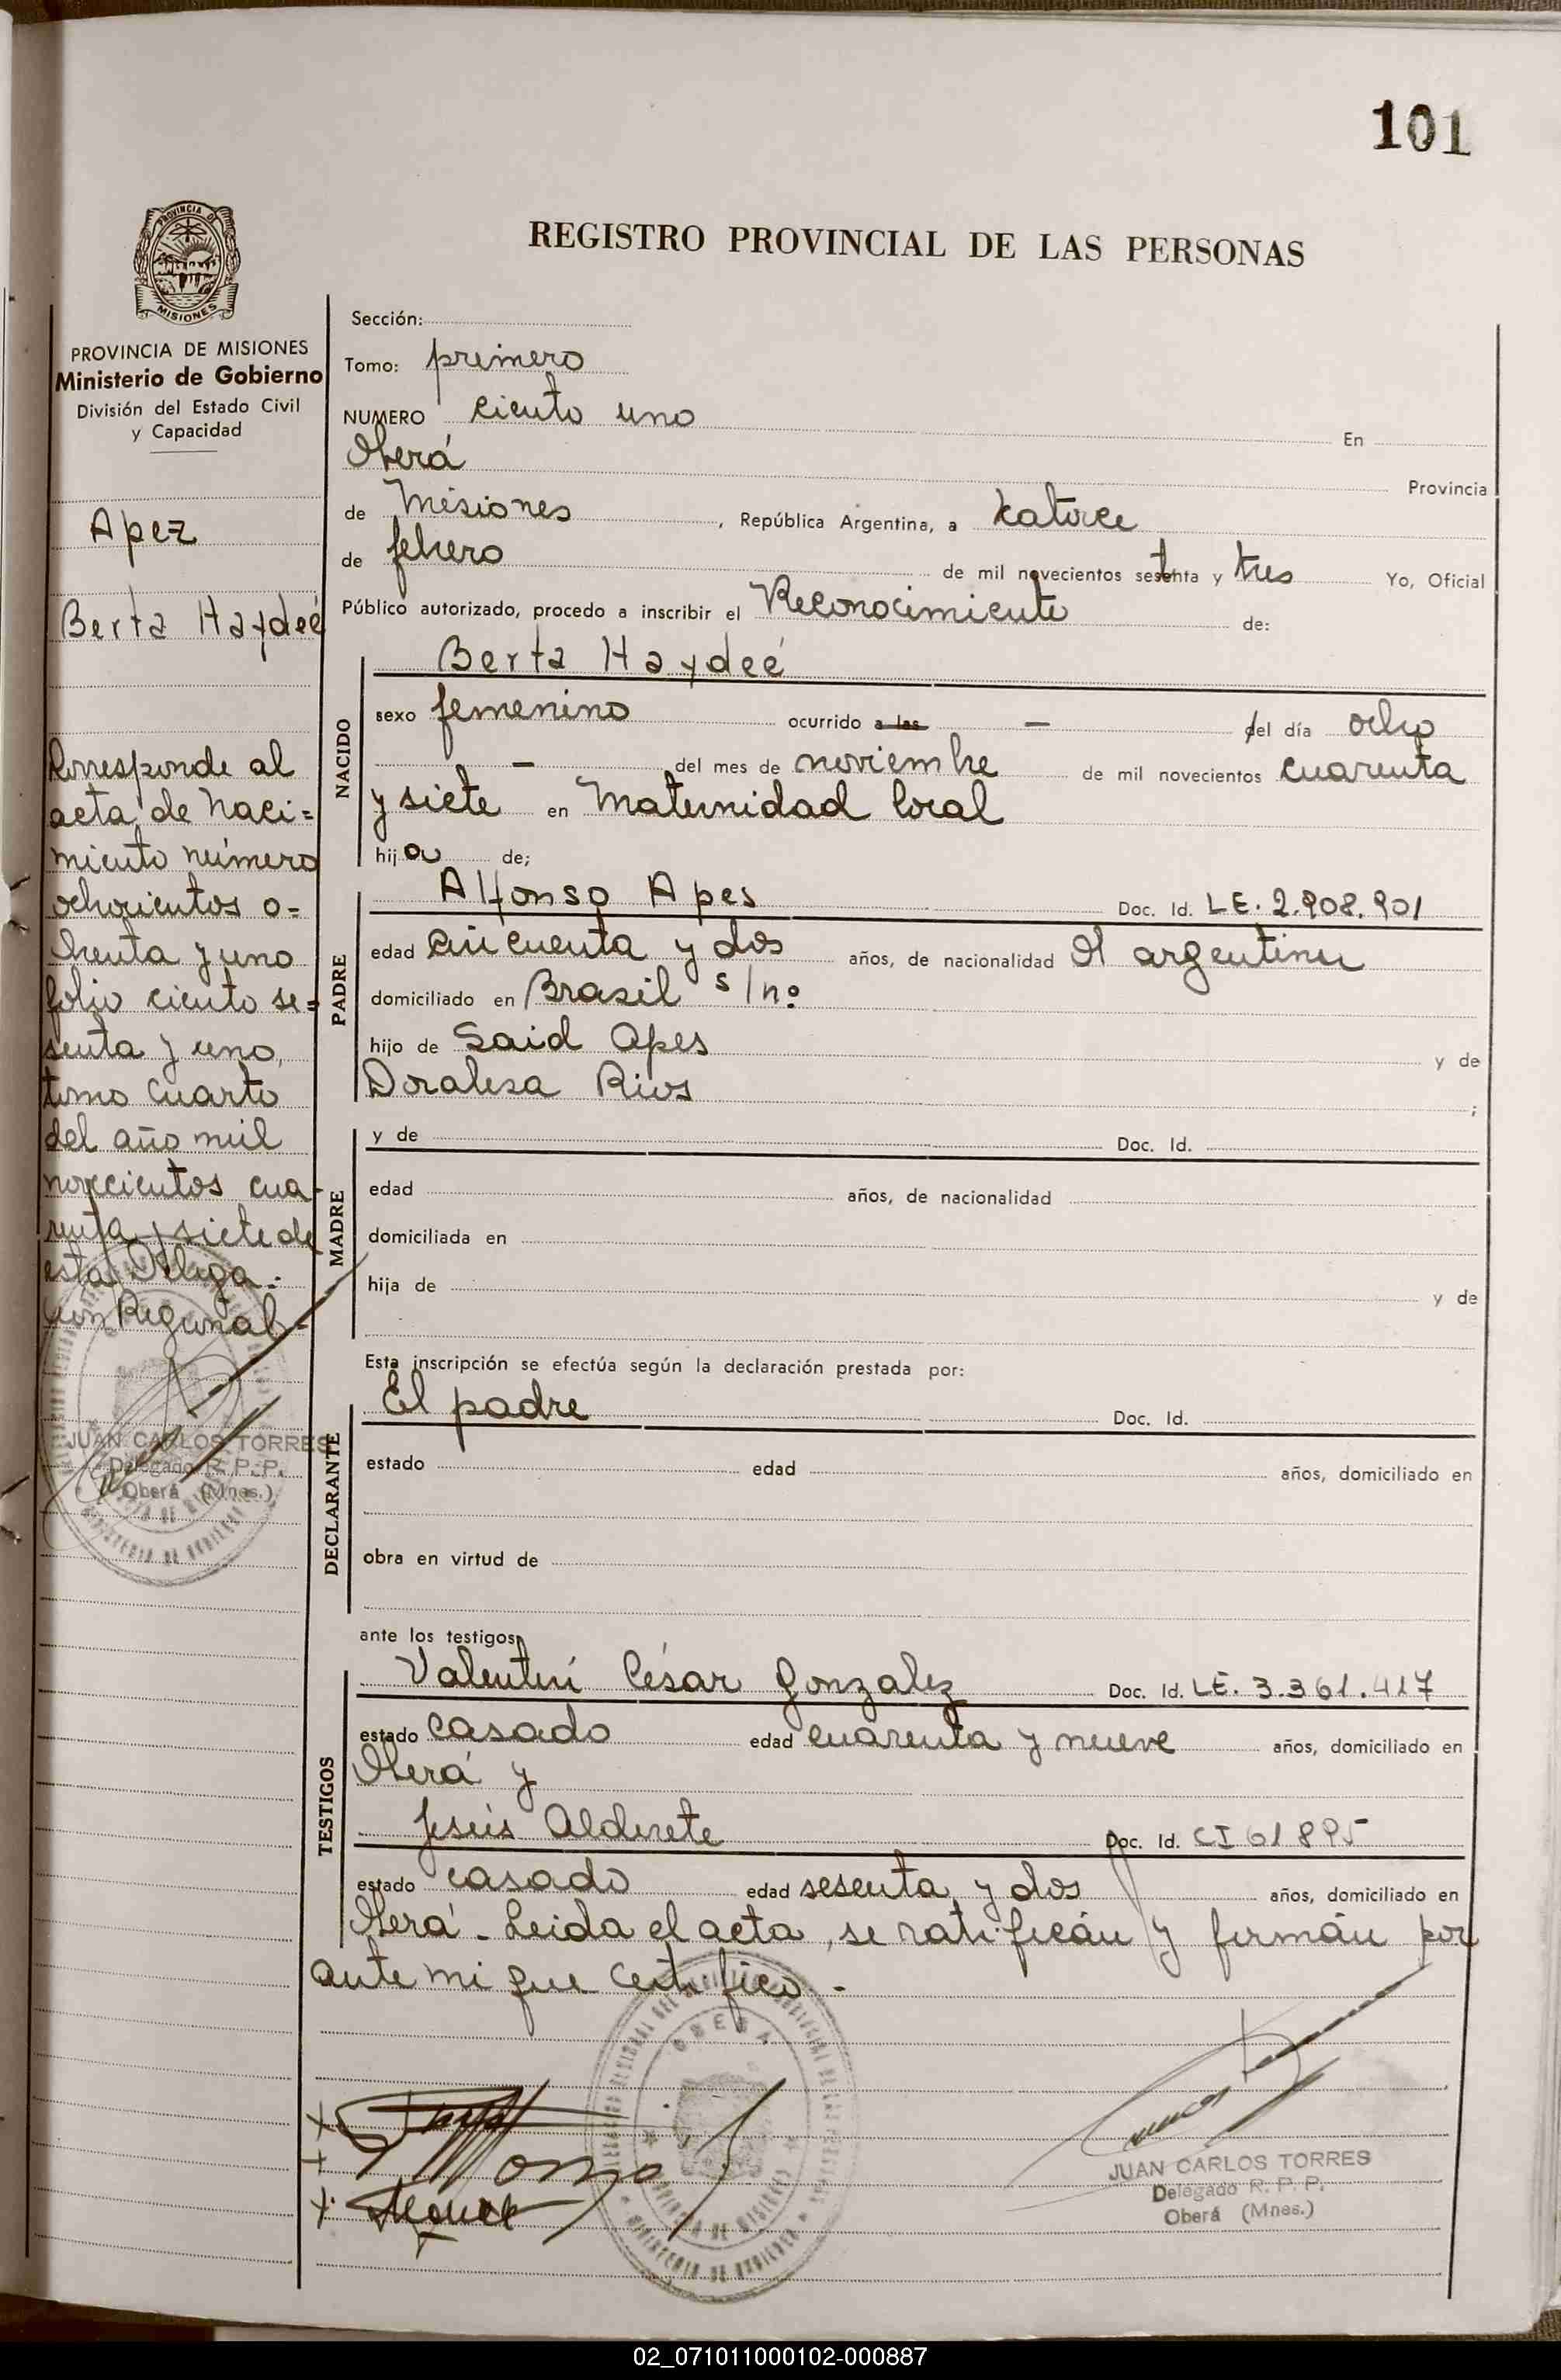 101
REGISTRO PROVINCIAL DE LAS PERSONAS
PROVINCIA DE MISIONES
Ministerio de Gobierno
División del Estado Civil
y Capacidad
Apez
Berta Haydeé
Corresponde al
acta de Naci=
miento número
ochocientos o=
chenta y uno
folio ciento se=
senta y uno,
tomo cuarto
del año mil
novecientos cua-
renta y siete de
esta Delega-
ción Regional-
JUAN CARLOS TORRES
Delegado R. P. P.
Oberá (Mnes.)
Sección:
Tomo: primero
NUMERO ciento uno En
Oberá Provincia
de Misiones, República Argentina, a catorce
de febrero de mil novecientos setenta y tres Yo, Oficial
Público autorizado, procedo a inscribir el Reconocimiento de:
NACIDO
Berta Haydeé
sexo femenino ocurrido a las — del día ocho
— del mes de noviembre de mil novecientos cuarenta
y siete en Maternidad local
hija de;
PADRE
Alfonso Apes Doc. Id. LE. 2.908.901
edad cincuenta y dos años, de nacionalidad argentina
domiciliado en Brasil s/nº
hijo de Said Apes y de
Doralisa Rios ;
MADRE
y de Doc. Id.
edad años, de nacionalidad
domiciliada en
hija de y de
Esta inscripción se efectúa según la declaración prestada por:
DECLARANTE
El padre Doc. Id.
estado edad años, domiciliado en
obra en virtud de
ante los testigos
TESTIGOS
Valentín César Gonzalez Doc. Id. LE. 3.361.417
estado casado edad cuarenta y nueve años, domiciliado en
Oberá y
Jesús Alderete Doc. Id. CI 61895
estado casado edad sesenta y dos años, domiciliado en
Oberá. Leida el acta, se ratificán y firmán por
ante mi que certifico.-
OBERA
PROVINCIA DE MISIONES
MINISTERIO DE GOBIERNO
JUAN CARLOS TORRES
Delegado R. P. P.
Oberá (Mnes.)
02_071011000102-000887